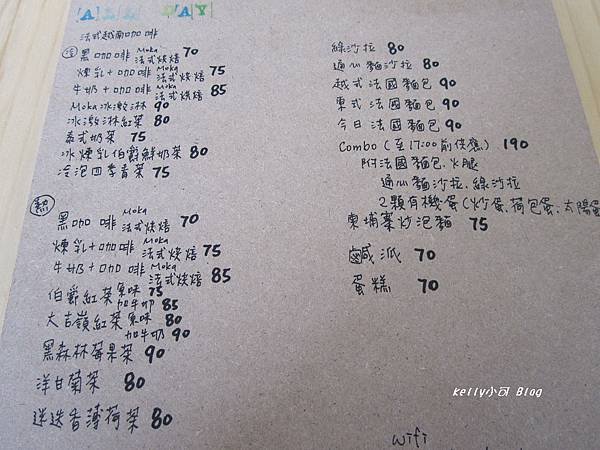 ALL DAY
法式越南咖啡
冷 黑咖啡 Moka 法式烘焙 70
煉乳+咖啡 Moka 法式烘焙 75
牛奶+咖啡 Moka 法式烘焙 85
Moka冰激淋 90
冰激淋紅茶 80
泰式奶茶 75
冰煉乳伯爵鮮奶茶 80
冷泡四季青茶 75
熱
黑咖啡 Moka 法式烘焙 70
煉乳+咖啡 Moka 法式烘焙 75
牛奶+咖啡 Moka 法式烘焙 85
伯爵紅茶 原味 75
加牛奶 85
大吉嶺紅茶 原味 80
加牛奶 90
黑森林莓果茶 90
洋甘菊茶 80
迷迭香薄荷茶 80
綠沙拉 80
通心麵沙拉 80
越式法國麵包 90
東式法國麵包 90
今日法國麵包 90
Combo (至17:00前供應) 190
附法國麵包、火腿
通心麵沙拉、綠沙拉
2顆有機蛋(炒蛋、荷包蛋、太陽蛋
柬埔寨炒泡麵 75
鹹派 70
蛋糕 70
kelly小可 Blog
wifi